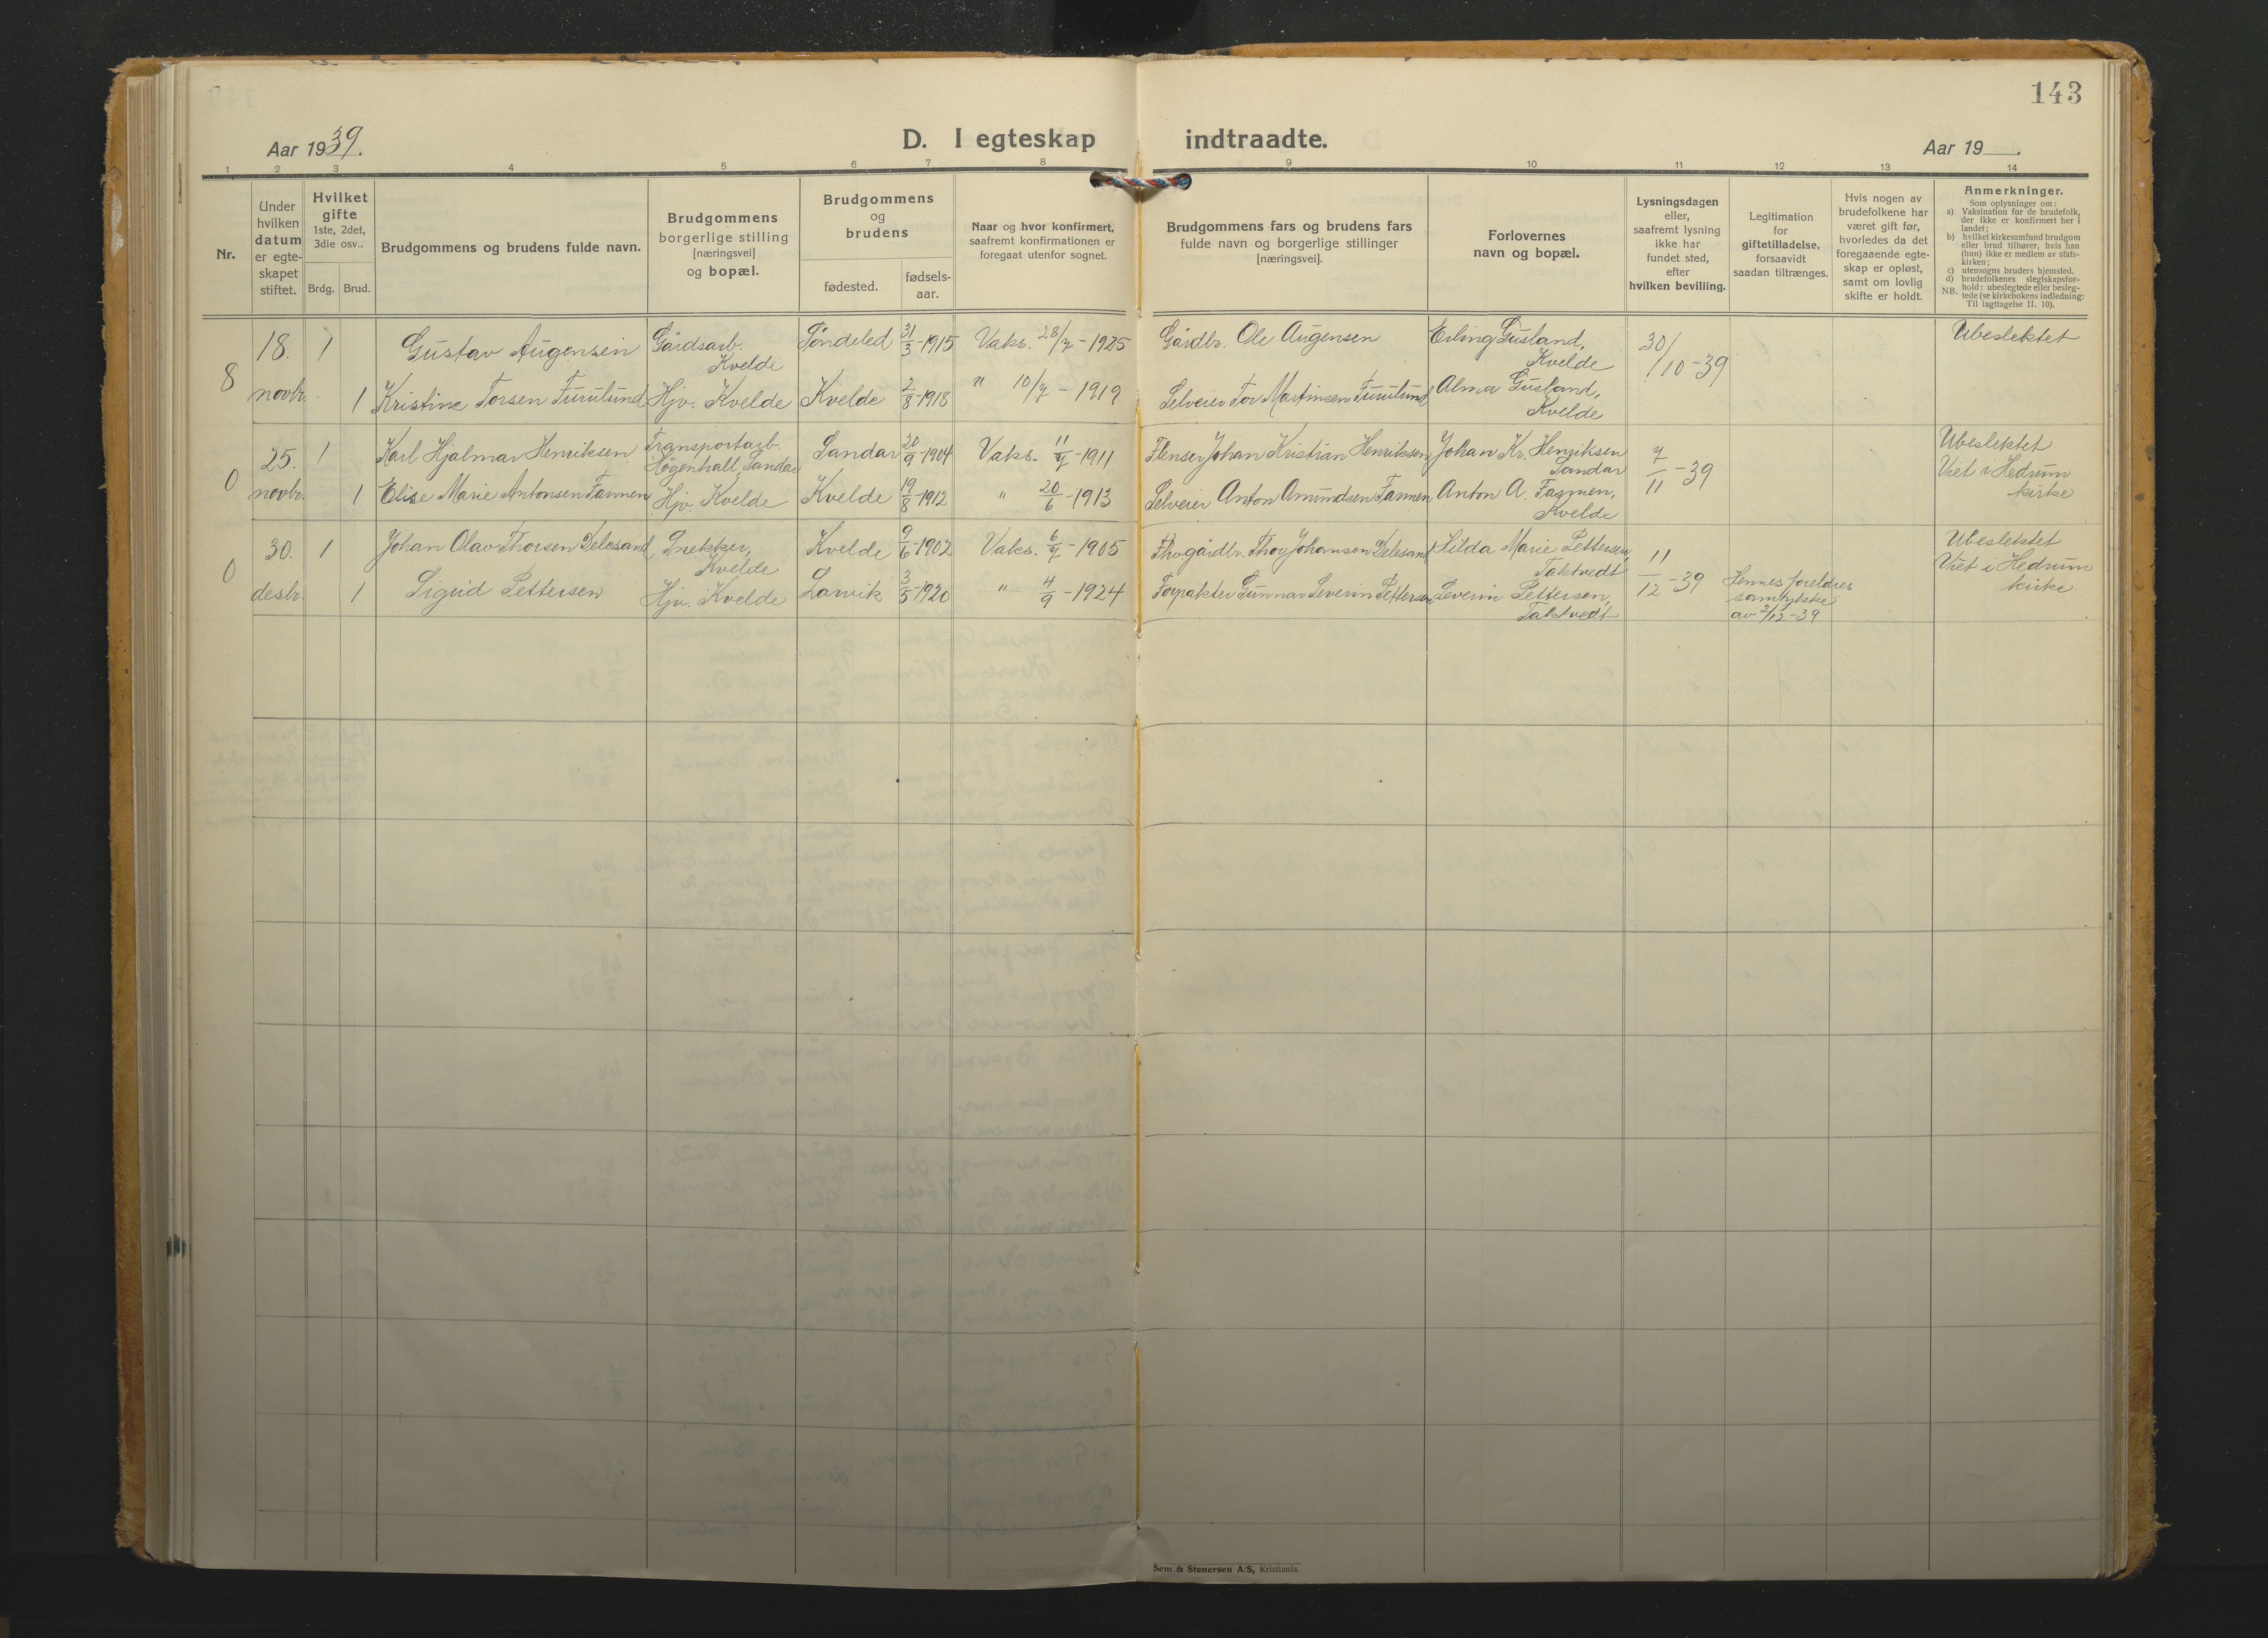 143
Aar 1939.
D. I egteskap indtraadte.
Aar 19 .
1 2 3 4 5 6 7 8 9 10 11 12 13 14
Nr.
Under
hvilken
datum
er egte-
skapet
stiftet.
Hvilket
gifte
1ste, 2det,
3die osv..
Brdg. Brud.
Brudgommens og brudens fulde navn.
Brudgommens
borgerlige stilling
[næringsvei]
og bopæl.
Brudgommens
og
brudens
fødested.
fødsels-
aar.
Naar og hvor konfirmert,
saafremt konfirmationen er
foregaat utenfor sognet.
Brudgommens fars og brudens fars
fulde navn og borgerlige stillinger
[næringsvei].
Forlovernes
navn og bopæl.
Lysningsdagen
eller,
saafremt lysning
ikke har
fundet sted,
efter
hvilken bevilling.
Legitimation
for
giftetilladelse,
forsaavidt
saadan tiltrænges.
Hvis nogen av
brudefolkene har
været gift før,
hvorledes da det
foregaaende egte-
skap er opløst,
samt om lovlig
skifte er holdt.
Anmerkninger.
Som oplysninger om:
a) Vaksination for de brudefolk,
der ikke er konfirmert her i
landet;
b) hvilket kirkesamfund brudgom
eller brud tilhører, hvis han
(hun) ikke er medlem av stats-
kirken;
c) utensogns bruders hjemsted.
d) brudefolkenes slegtskapsfor-
hold: ubeslegtede eller besleg-
tede (se kirkebokens indledning:
NB. Til iagttagelse II. 10).
8
18. 1 Gustav Augensen Gårdsarb. Kvelde Söndeled 31/3-1915 Vaks. 28/7-1925 Gårdbr. Ole Augensen Erling Gusland, Kvelde 30/10-39 Ubeslektet
novbr. 1 Kristine Torsen Furulund Hjv. Kvelde Kvelde 2/8-1918 " 10/7-1919 Selveier Tor Martinsen Furulund Alma Gusland, Kvelde
0
25. 1 Karl Hjalmar Henriksen Transportarb. Høgenhall, Sandar Sandar 20/9-1904 Vaks. 11/7-1911 Flenser Johan Kristian Henriksen Johan Kr. Henriksen Sandar 7/11-39 Ubeslektet
Viet i Hedrum
kirke
novbr. 1 Elise Marie Antonsen Farmen Hjv. Kvelde Kvelde 19/8-1912 " 20/6-1913 Selveier Anton Amundsen Farmen Anton A. Farmen, Kvelde
0
30. 1 Johan Olav Thorsen Delesand Snekker, Kvelde Kvelde 9/6-1902 Vaks. 6/7-1905 Thor Johansen Delesand Hilda Marie Pettersen, Taktvedt 11/12-39 Ubeslektet
Viet i Hedrum
kirke
desbr. 1 Sigrid Pettersen Hjv. Kvelde Larvik 3/5-1920 " 4/9-1924 Forpakter Gunnar Severin Pettersen Severin Pettersen, Taktvedt
Hennes foreldres
samtykke
av 2/12-39
Sem & Stenersen A/S, Kristiania.